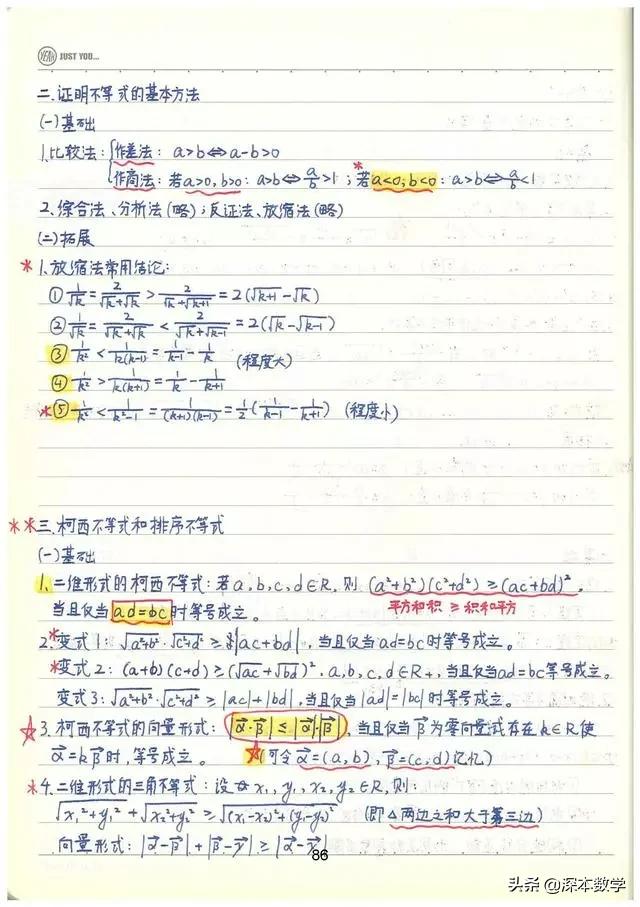 YEAH JUST YOU...
二.证明不等式的基本方法
(一)基础
1.比较法:{作差法: a>b⇔a-b>0
作商法:若a>0,b>0: a>b⇔a/b>1 ; *若a<0,b<0: a>b⇔a/b<1
2.综合法、分析法(略);反证法、放缩法(略)
(二)拓展
*1.放缩法常用结论:
①1/√k=2/(√k+√k)>2/(√k+√(k+1))=2(√(k+1)-√k)
②1/√k=2/(√k+√k)<2/(√k+√(k-1))=2(√k-√(k-1))
③1/k²<1/(k(k-1))=1/(k-1)-1/k (程度大)
④1/k²>1/(k(k+1))=1/k-1/(k+1)
*⑤1/k²<1/(k²-1)=1/((k+1)(k-1))=1/2(1/(k-1)-1/(k+1)) (程度小)
**三.柯西不等式和排序不等式
(一)基础
1.二维形式的柯西不等式:若a,b,c,d∈R,则 (a²+b²)(c²+d²)≥(ac+bd)²,
当且仅当ad=bc时等号成立。 平方和积≥积和平方
2.*变式1:√(a²+b²)·√(c²+d²)≥|ac+bd|,当且仅当ad=bc时等号成立。
*变式2:(a+b)(c+d)≥(√ac+√bd)².a,b,c,d∈R+,当且仅当ad=bc等号成立。
变式3:√(a²+b²)·√(c²+d²)≥|ac|+|bd|,当且仅当|ad|=|bc|时等号成立。
☆3.柯西不等式的向量形式:|α⃗·β⃗|≤|α⃗|·|β⃗|,当且仅当β⃗为零向量或存在k∈R,使
α⃗=kβ⃗时,等号成立。 ☆(可令α⃗=(a,b),β⃗=(c,d)记忆)
*4.二维形式的三角不等式:设x₁,y₁,x₂,y₂∈R,则:
√(x₁²+y₁²)+√(x₂²+y₂²)≥√((x₁-x₂)²+(y₁-y₂)²) (即△两边之和大于第三边)
向量形式:|α⃗-β⃗|+|β⃗-γ⃗|≥|α⃗-γ⃗|
86
头条@深本数学